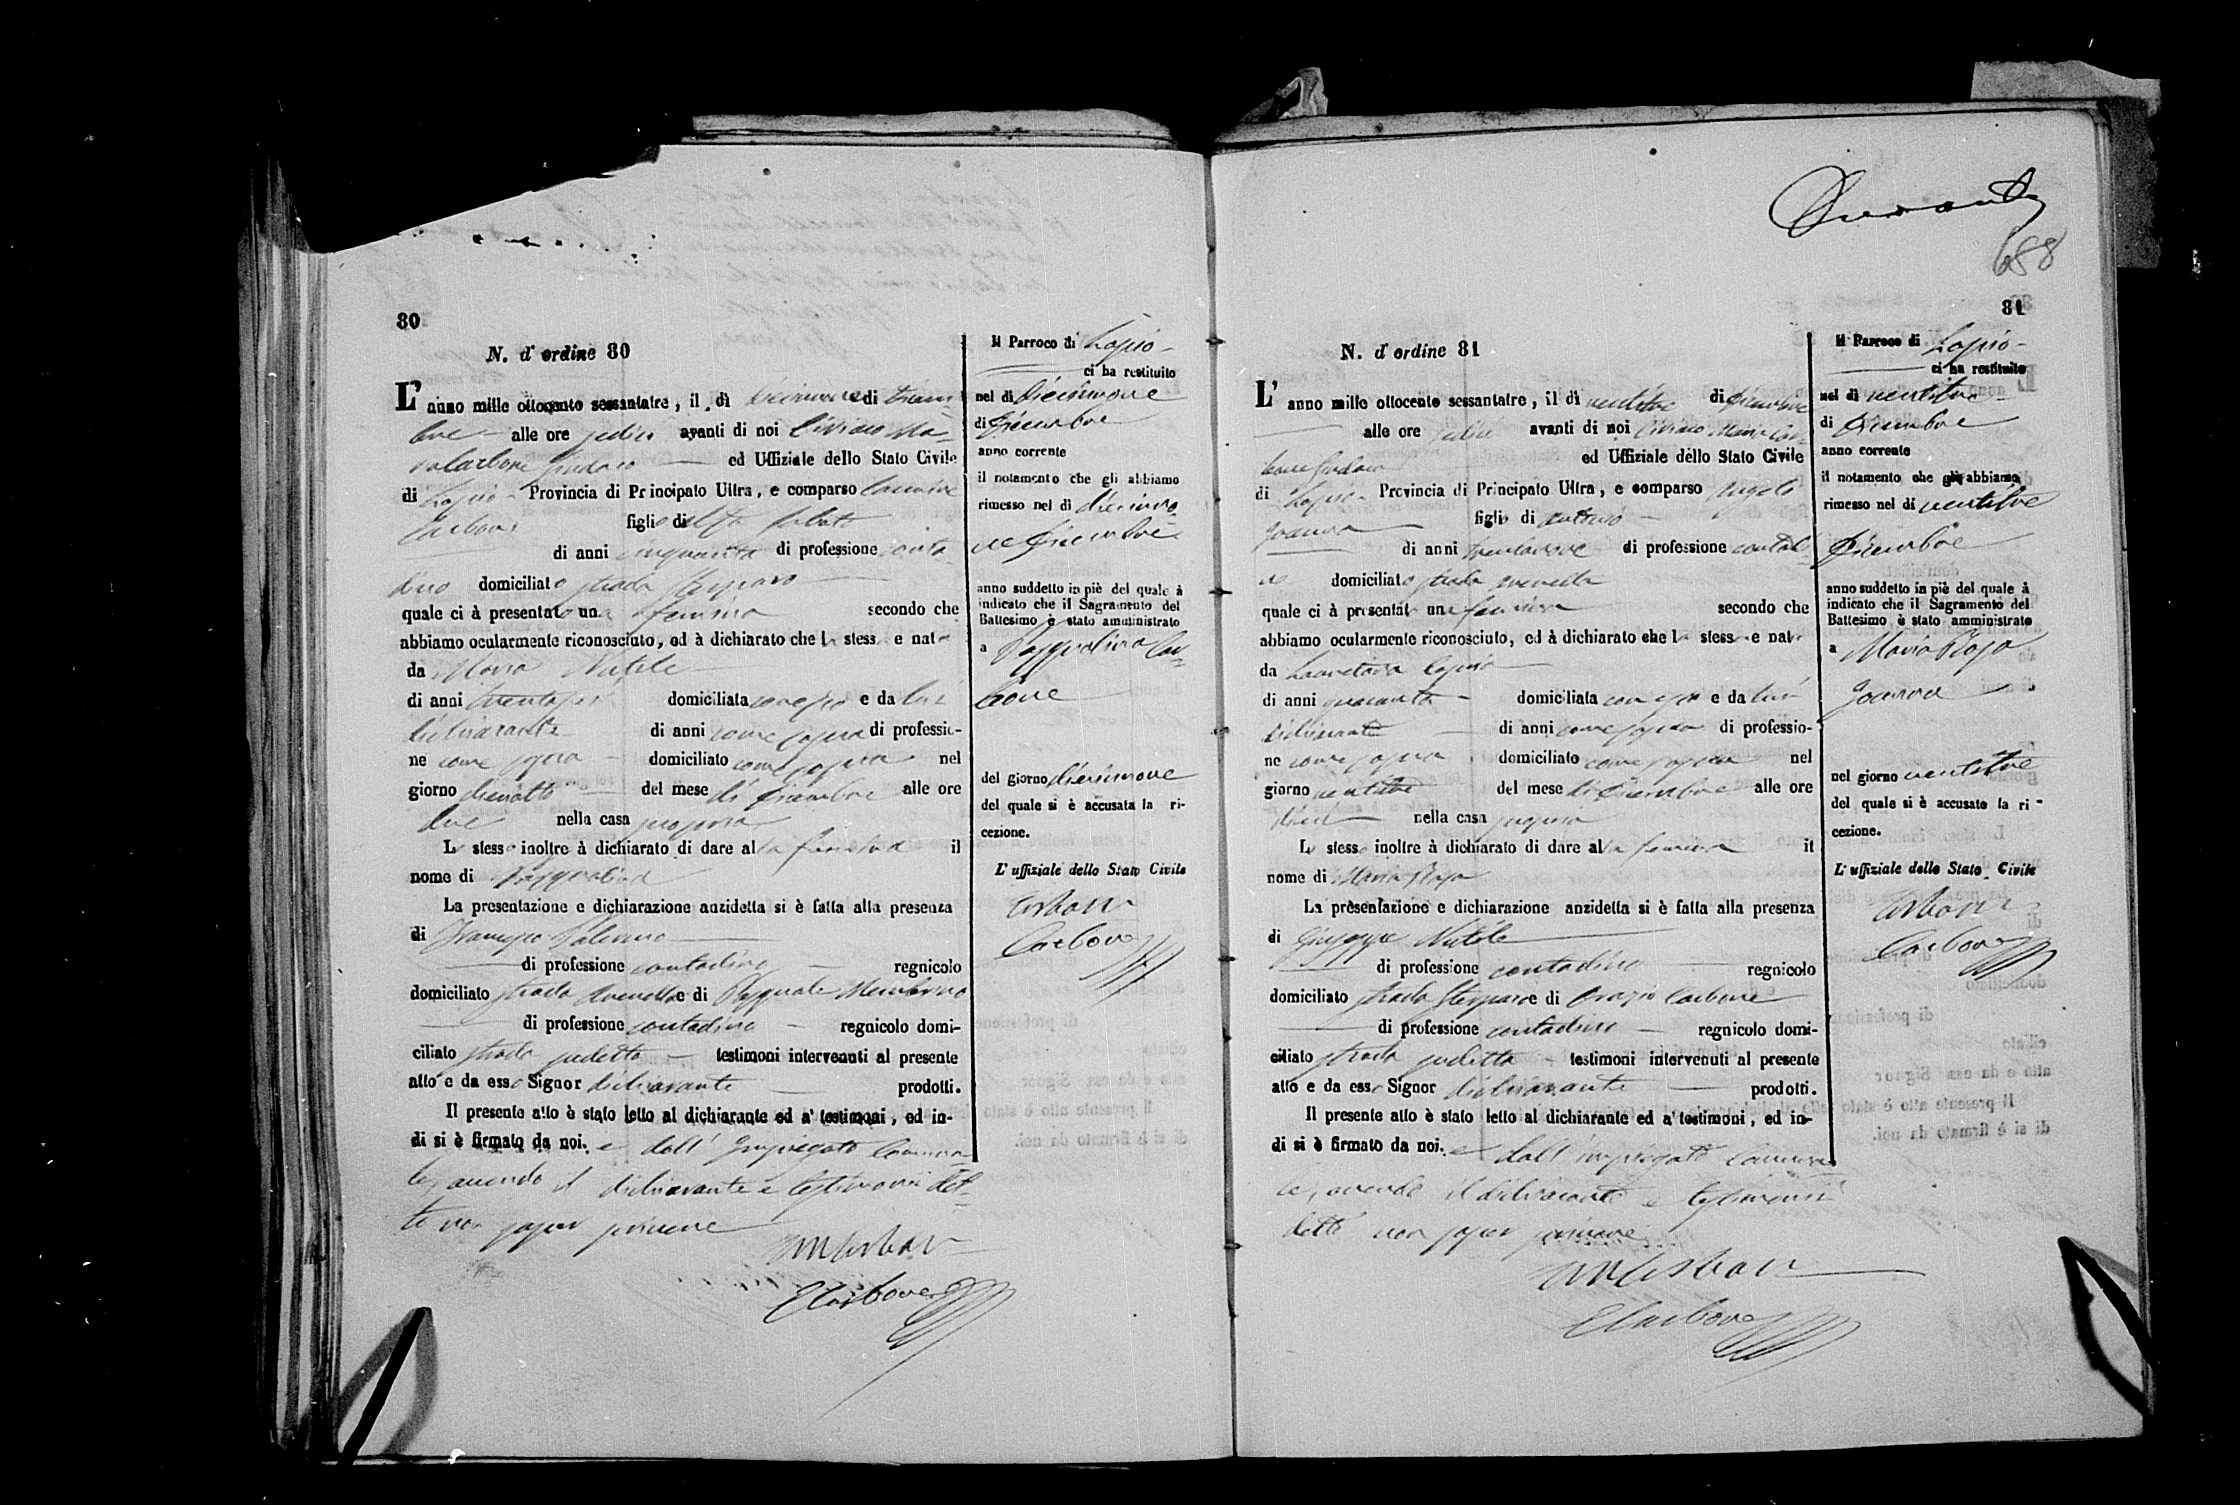 80
N. d'ordine 80
L'anno mille ottocento sessantatre, il dì diecinnove di Dicem
bre alle ore sedici avanti di noi Ciriaco Ma-
ria Carbone Sindaco ed Uffiziale dello Stato Civile
di Lapio Provincia di Principato Ultra, e comparso
Carbone figlio di Sabato
di anni cinquanta di professione conta-
dino domiciliato strada
quale ci à presentato una femina secondo che
abbiamo ocularmente riconosciuto, ed à dichiarato che la stessa e nata
da Maria Nutile
di anni domiciliata come sopra e da lui
dichiarante di anni come sopra di professio-
ne come sopra domiciliato come sopra nel
giorno dieciotto del mese di Dicembre alle ore
due nella casa propria
Lo stesso inoltre à dichiarato di dare alla femina il
nome di Pasqualina
La presentazione e dichiarazione anzidetta si è fatta alla presenza
di Francesco Salerno
di professione contadino regnicolo
domiciliato strada e di Pasquale
di professione contadino regnicolo domi-
ciliato strada testimoni intervenuti al presente
atto e da esso Signor dichiarante prodotti.
Il presente atto è stato letto al dichiarante ed a' testimoni, ed in-
di si è firmato da noi. e dall' Impiegato Comuna-
le, avendo il dichiarante e testimoni det-
to non saper scrivere
Carbone
Il Parroco di Lapio
ci ha restituito
nel dì diecinnove
di Dicembre
anno corrente
il notamento che gli abbiamo
rimesso nel dì diecinno
ve Dicembre
anno suddetto in piè del quale à
indicato che il Sagramento del
Battesimo è stato amministrato
a Pasqualina Car-
bone
del giorno diecinnove
del quale si è accusata la ri-
cezione.
L'uffiziale dello Stato Civile
Carbone
688
81
N. d'ordine 81
L'anno mille ottocento sessantatre, il dì ventitre di Dicembre
alle ore sedici avanti di noi Ciriaco Maria Car-
bone Sindaco ed Uffiziale dello Stato Civile
di Lapio Provincia di Principato Ultra, e comparso Angelo
figlio di Antonio
di anni trentanove di professione contadi-
no domiciliato strada
quale ci à presentato una femina secondo che
abbiamo ocularmente riconosciuto, ed à dichiarato che la stessa e nata
da
di anni quaranta domiciliata come sopra e da lui
dichiarante di anni come sopra di professio-
ne come sopra domiciliato come sopra nel
giorno ventitre del mese di Dicembre alle ore
dieci nella casa propria
Lo stesso inoltre à dichiarato di dare alla femina il
nome di Maria Rosa
La presentazione e dichiarazione anzidetta si è fatta alla presenza
di Giuseppe Nutile
di professione contadino regnicolo
domiciliato strada e di Orazio Carbone
di professione contadino regnicolo domi-
ciliato strada testimoni intervenuti al presente
atto e da esso Signor dichiarante prodotti.
Il presente atto è stato letto al dichiarante ed a' testimoni, ed in-
di si è firmato da noi. e dall' impiegato Comuna-
le, avendo il dichiarante e testimoni
detto non saper scrivere
Carbone
Il Parroco di Lapio
ci ha restituito
nel dì ventitre
di Dicembre
anno corrente
il notamento che gli abbiamo
rimesso nel dì ventitre
Dicembre
anno suddetto in piè del quale à
indicato che il Sagramento del
Battesimo è stato amministrato
a Maria Rosa
nel giorno ventitre
del quale si è accusato la ri-
cezione.
L'uffiziale dello Stato Civile
Carbone